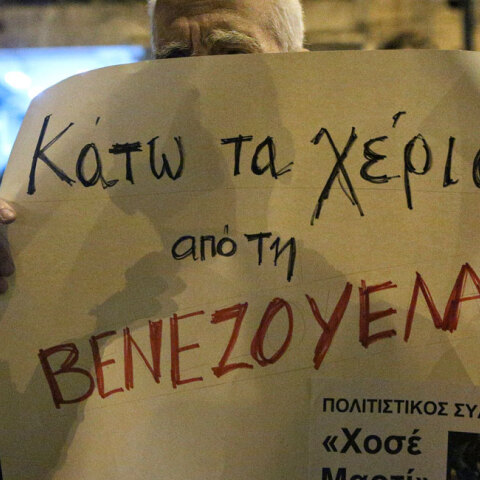 Κάτω τα χέρια
από τη
ΒΕΝΕΖΟΥΕΛΑ
ΠΟΛΙΤΙΣΤΙΚΟΣ ΣΥΛ
«Χοσέ
Μαρτί»